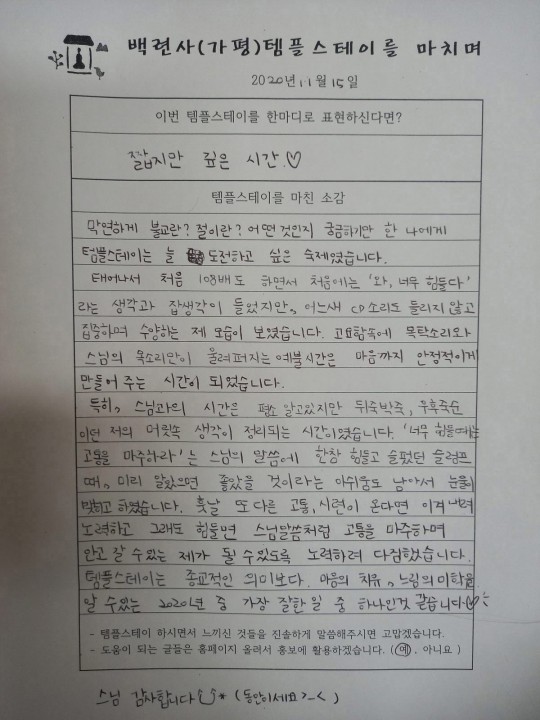 백련사(가평)템플스테이를 마치며
2020년 11월 15일
이번 템플스테이를 한마디로 표현하신다면?
짧지만 깊은 시간.♡
템플스테이를 마친 소감
막연하게 불교란? 절이란? 어떤 것인지 궁금하기만 한 나에게
템플스테이는 늘 도전하고 싶은 숙제였습니다.
태어나서 처음 108배도 하면서 처음에는 '와, 너무 힘들다'
라는 생각과 잡생각이 들었지만, 어느새 CD소리도 들리지 않고
집중하며 수양하는 제 모습이 보였습니다. 고요함속에 목탁소리와
스님의 목소리만이 울려퍼지는 예불시간은 마음까지 안정적이게
만들어 주는 시간이 되었습니다.
특히, 스님과의 시간은 평소 알고있지만 뒤죽박죽, 우후죽순
이던 저의 머릿속 생각이 정리되는 시간이였습니다. '너무 힘들때는
고통을 마주하라'는 스님의 말씀에 한창 힘들고 슬펐던 슬럼프
때, 미리 알았으면 좋았을 것이라는 아쉬움도 남아서 눈물이
맺히고 하였습니다. 훗날 또 다른 고통, 시련이 온다면 이겨내려
노력하고 그래도 힘들면 스님말씀처럼 고통을 마주하며
안고 갈 수 있는 제가 될 수 있도록 노력하려 다짐했습니다.
템플스테이는 종교적인 의미보다. 마음의 치유, 느림의 미학을
알 수 있는 2020년 중 가장 잘한 일 중 하나인것 같습니다♡
- 템플스테이 하시면서 느끼신 것들을 진솔하게 말씀해주시면 고맙겠습니다.
- 도움이 되는 글들은 홈페이지 올려서 홍보에 활용하겠습니다. (예, 아니요)
스님 감사합니다 * (동안이세요>_<)